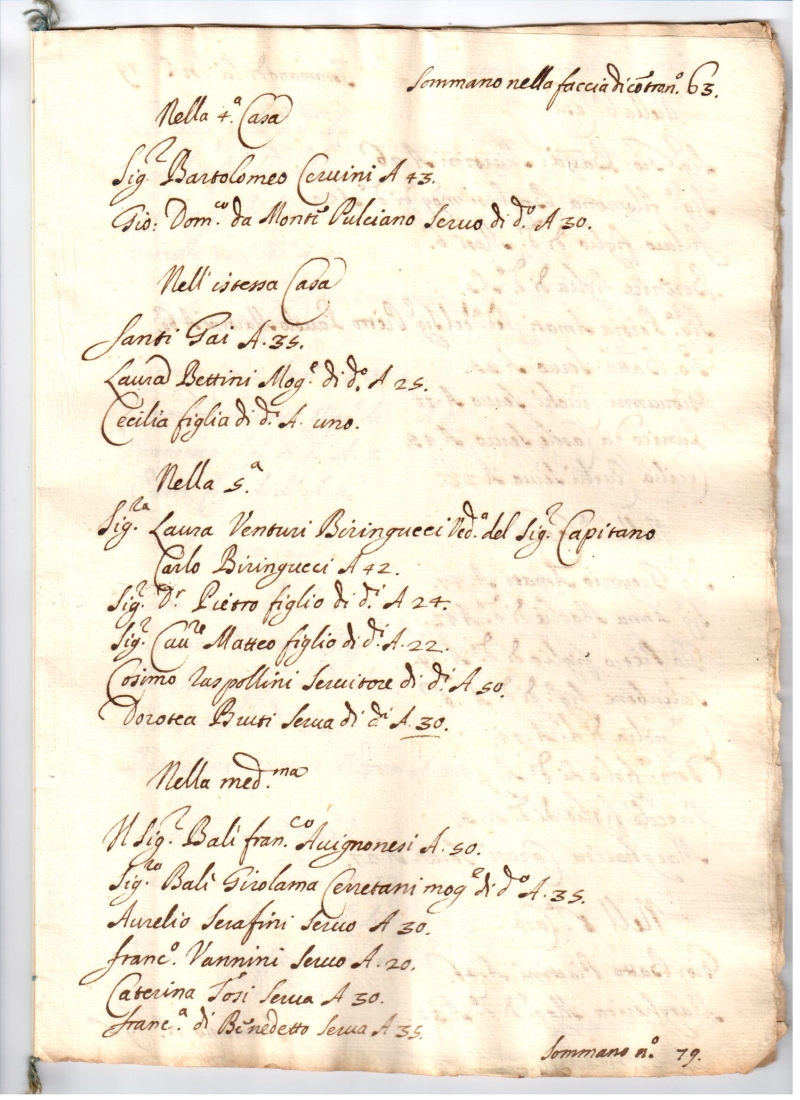 Sommano nella faccia di cōtran.º 63.
Nella 4.ª Casa
Sig.r Bartolomeo Ceruini A 43.
Gio: Dom.co da Monte Pulciano Seruo di d.º A 30.
Nell'istessa Casa
Santi Gai A. 35.
Laura Bettini Mog.e di d.º A 25.
Cecilia figlia di d.i A. uno.
Nella 5.ª
Sig.ra Laura Venturi Biringucci Ved.ª del Sig.r Capitano
Carlo Biringucci A 42.
Sig.r D.r Pietro figlio di d.i A 24.
Sig.r Cau.re Matteo figlio di d.i A. 22.
Cosimo Raspollini Seruitore di d.i A 50.
Dorotea Bruti Serua di d.i A. 30.
Nella med.ma
Il Sig.r Balì fran.co Auignonesi A. 50.
Sig.ra Balì Girolama Cerretani mog.e di d.º A. 35.
Aurelio Serafini Seruo A 30.
franc.º Vannini Seruo A. 20.
Caterina Tosi Serua A 30.
franc.ª di Benedetto Serua A 35.
Sommano n.º 79.